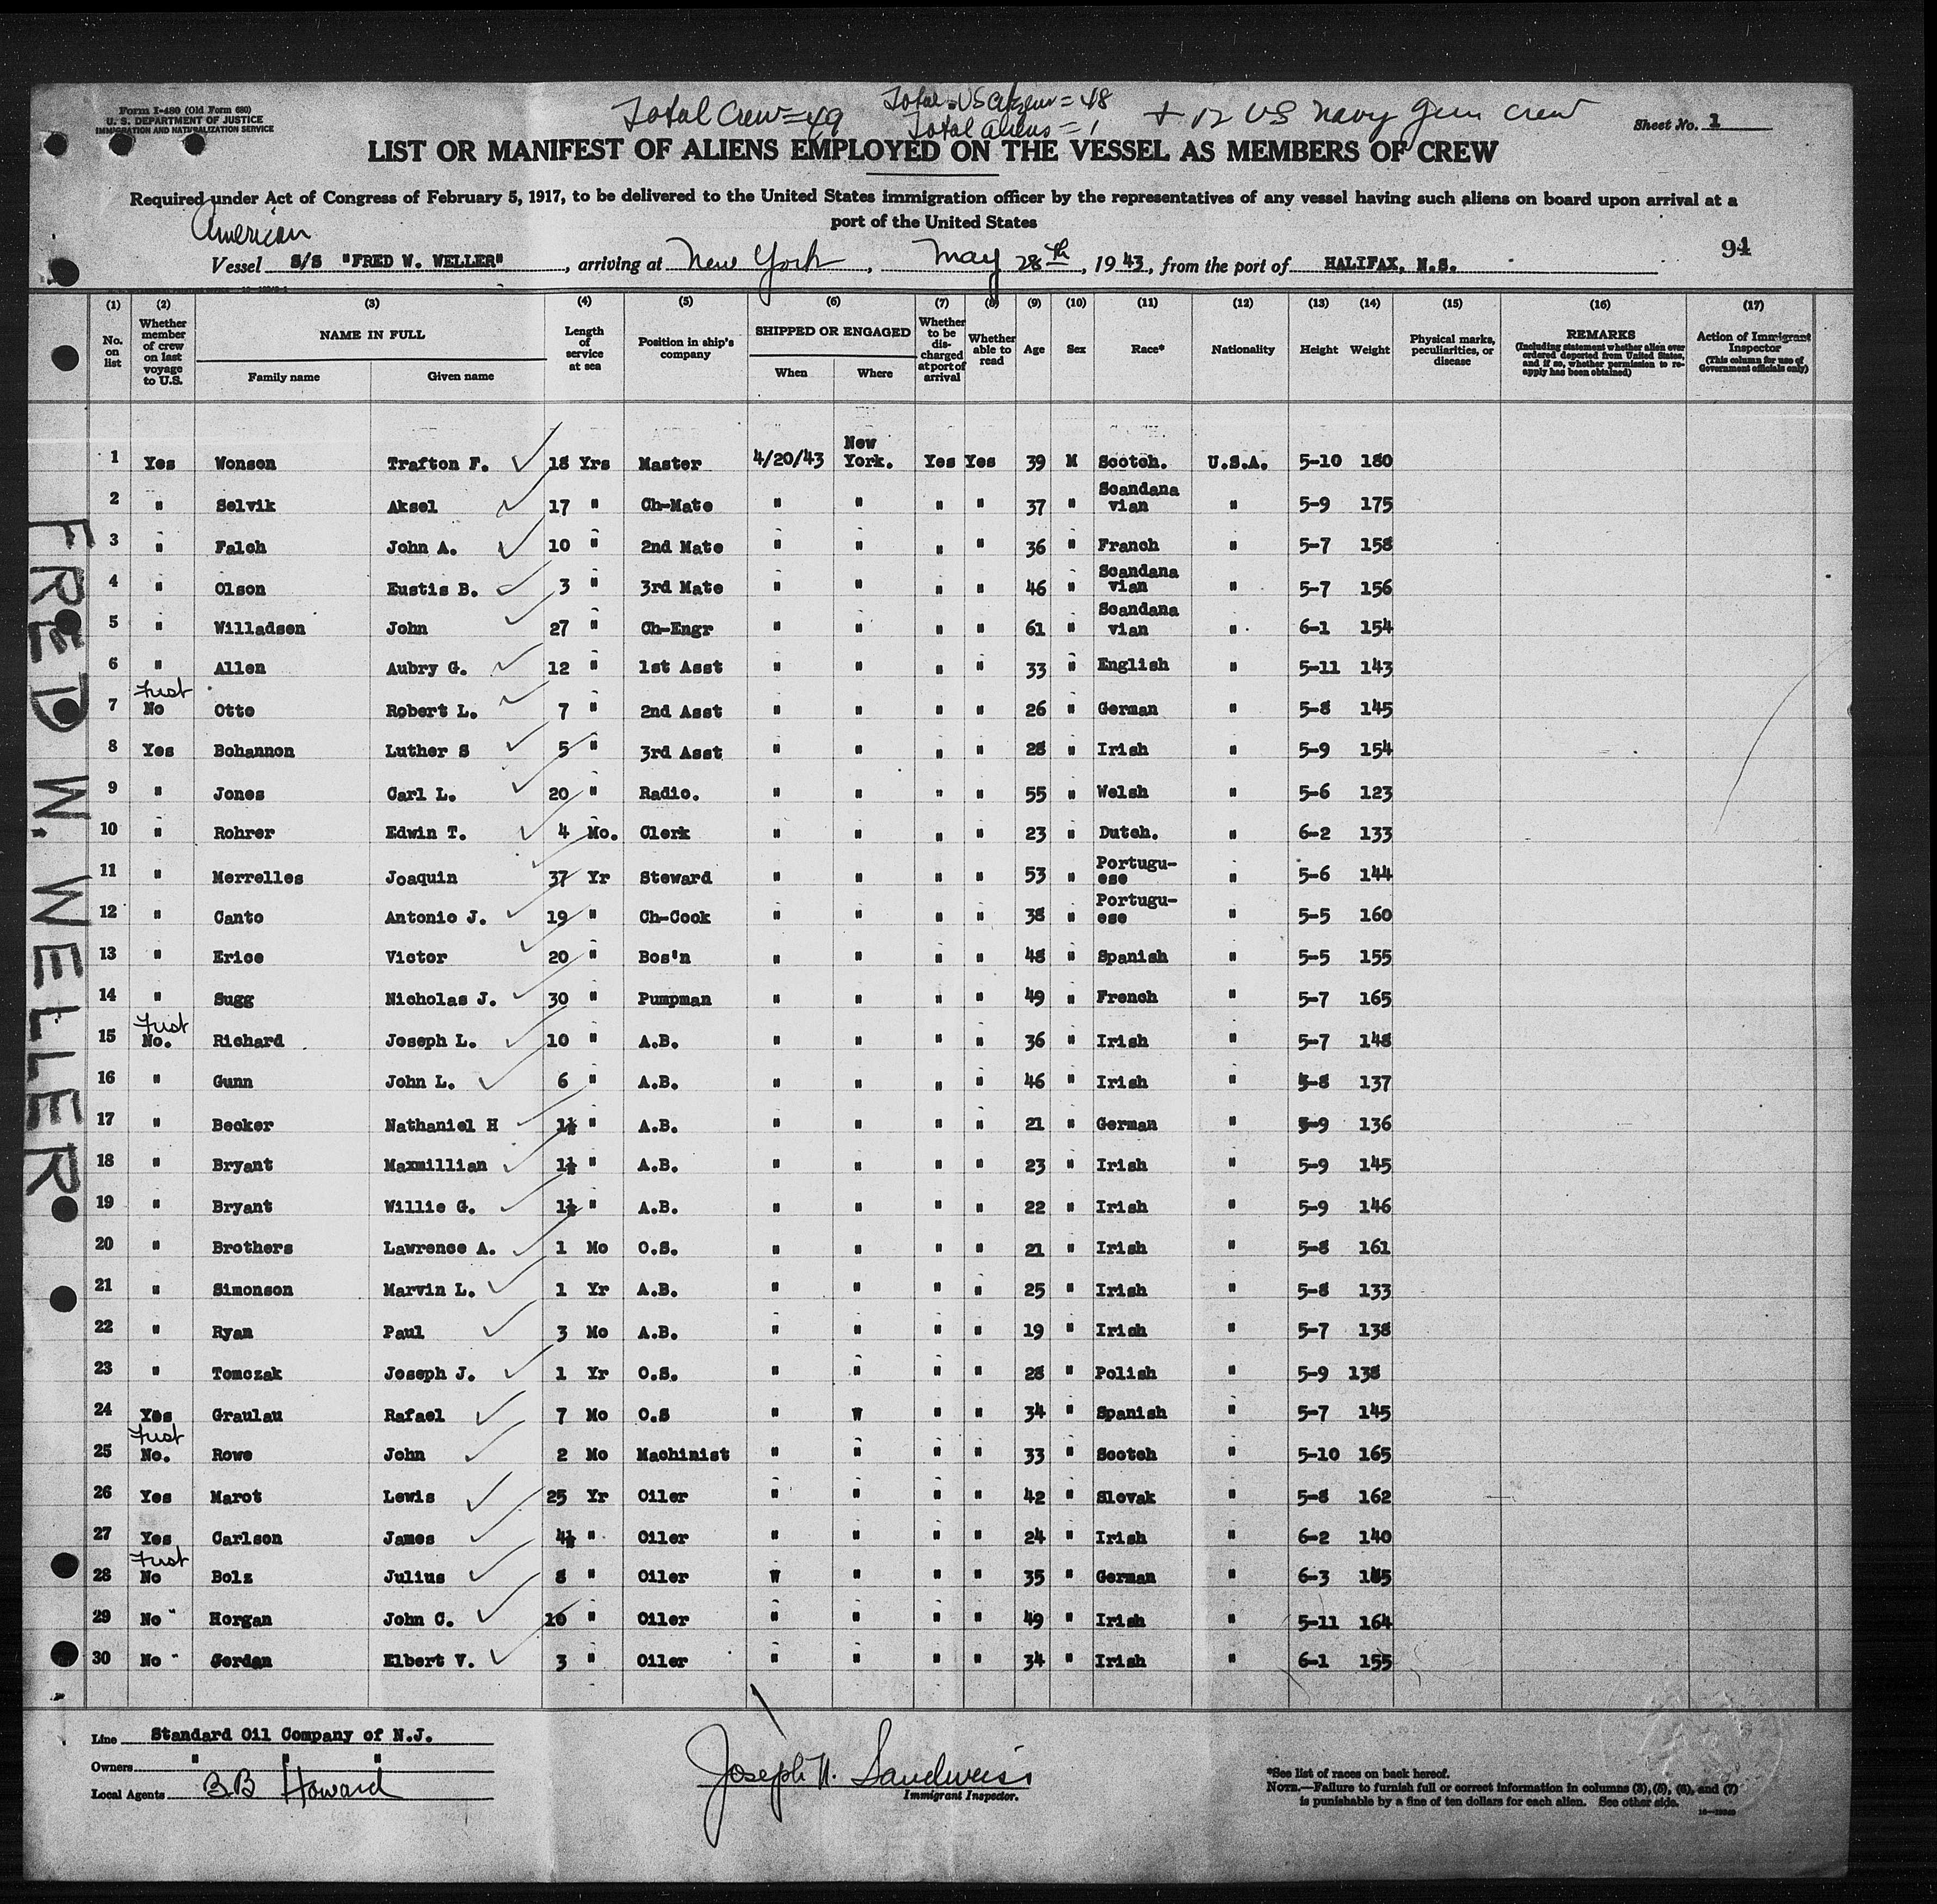 Form I-480 (Old Form 680)
U. S. DEPARTMENT OF JUSTICE
IMMIGRATION AND NATURALIZATION SERVICE
Total Crew = 49
Total US Citizens = 48
Total Aliens = 1
+ 12 US Navy Gun Crew
Sheet No. 1
LIST OR MANIFEST OF ALIENS EMPLOYED ON THE VESSEL AS MEMBERS OF CREW
Required under Act of Congress of February 5, 1917, to be delivered to the United States immigration officer by the representatives of any vessel having such aliens on board upon arrival at a
port of the United States
American
94
Vessel S/S "FRED W. WELLER", arriving at New York, May 28th, 1943, from the port of HALIFAX, N.S.
(1) (2) (3) (4) (5) (6) (7) (8) (9) (10) (11) (12) (13) (14) (15) (16) (17)
No. on list Whether member of crew on last voyage to U.S. NAME IN FULL Family name Given name Length of service at sea Position in ship's company SHIPPED OR ENGAGED When Where Whether to be discharged at port of arrival Whether able to read Age Sex Race* Nationality Height Weight Physical marks, peculiarities, or disease REMARKS (Including statement whether alien ever ordered deported from United States, and if so, whether permission to reapply has been obtained) Action of Immigrant Inspector (This column for use of Government officials only)
1 Yes Wonson Trafton F. 18 Yrs Master 4/20/43 New York. Yes Yes 39 M Scotch. U.S.A. 5-10 180
2 " Selvik Aksel 17 " Ch-Mate " " " " 37 " Scandana vian " 5-9 175
3 " Falch John A. 10 " 2nd Mate " " " " 36 " Franch " 5-7 158
4 " Olson Eustis B. 3 " 3rd Mate " " " " 46 " Scandana vian " 5-7 156
5 " Willadsen John 27 " Ch-Engr " " " " 61 " Scandana vian " 6-1 154
6 " Allen Aubry G. 12 " 1st Asst " " " " 33 " English " 5-11 143
7 First No Otto Robert L. 7 " 2nd Asst " " " " 26 " German " 5-8 145
8 Yes Bohannon Luther S 5 " 3rd Asst " " " " 28 " Irish " 5-9 154
9 " Jones Carl L. 20 " Radio. " " " " 55 " Welsh " 5-6 123
10 " Rohrer Edwin T. 4 Mo. Clerk " " " " 23 " Dutch. " 6-2 133
11 " Merrelles Joaquin 37 Yr Steward " " " " 53 " Portugu-ese " 5-6 144
12 " Canto Antonio J. 19 " Ch-Cook " " " " 38 " Portugu-ese " 5-5 160
13 " Erice Victor 20 " Bos'n " " " " 48 " Spanish " 5-5 155
14 " Sugg Nicholas J. 30 " Pumpman " " " " 49 " French " 5-7 165
15 First No. Richard Joseph L. 10 " A.B. " " " " 36 " Irish " 5-7 148
16 " Gunn John L. 6 " A.B. " " " " 46 " Irish " 5-8 137
17 " Becker Nathaniel H 1½ " A.B. " " " " 21 " German " 5-9 136
18 " Bryant Maxmillian 1½ " A.B. " " " " 23 " Irish " 5-9 145
19 " Bryant Willie G. 1½ " A.B. " " " " 22 " Irish " 5-9 146
20 " Brothers Lawrence A. 1 Mo O.S. " " " " 21 " Irish " 5-8 161
21 " Simonson Marvin L. 1 Yr A.B. " " " " 25 " Irish " 5-8 133
22 " Ryan Paul 3 Mo A.B. " " " " 19 " Irish " 5-7 138
23 " Tomczak Joseph J. 1 Yr O.S. " " " " 28 " Polish " 5-9 138
24 Yes Graulau Rafael 7 Mo O.S " W " " 34 " Spanish " 5-7 145
25 First No. Rowe John 2 Mo Machinist " " " " 33 " Scotch " 5-10 165
26 Yes Marot Lewis 25 Yr Oiler " " " " 42 " Slovak " 5-8 162
27 Yes Carlson James 4½ " Oiler " " " " 24 " Irish " 6-2 140
28 First No Bolz Julius 8 " Oiler W " " " 35 " German " 6-3 185
29 No " Horgan John C. 10 " Oiler " " " " 49 " Irish " 5-11 164
30 No " Jordan Elbert V. 3 " Oiler " " " " 34 " Irish " 6-1 155
FRED W. WELLER
Line Standard Oil Company of N.J.
Owners " " "
Local Agents BB Howard
Joseph N. Sandweiss
Immigrant Inspector.
*See list of races on back hereof.
NOTE.—Failure to furnish full or correct information in columns (3), (5), (6), and (7)
is punishable by a fine of ten dollars for each alien. See other side.